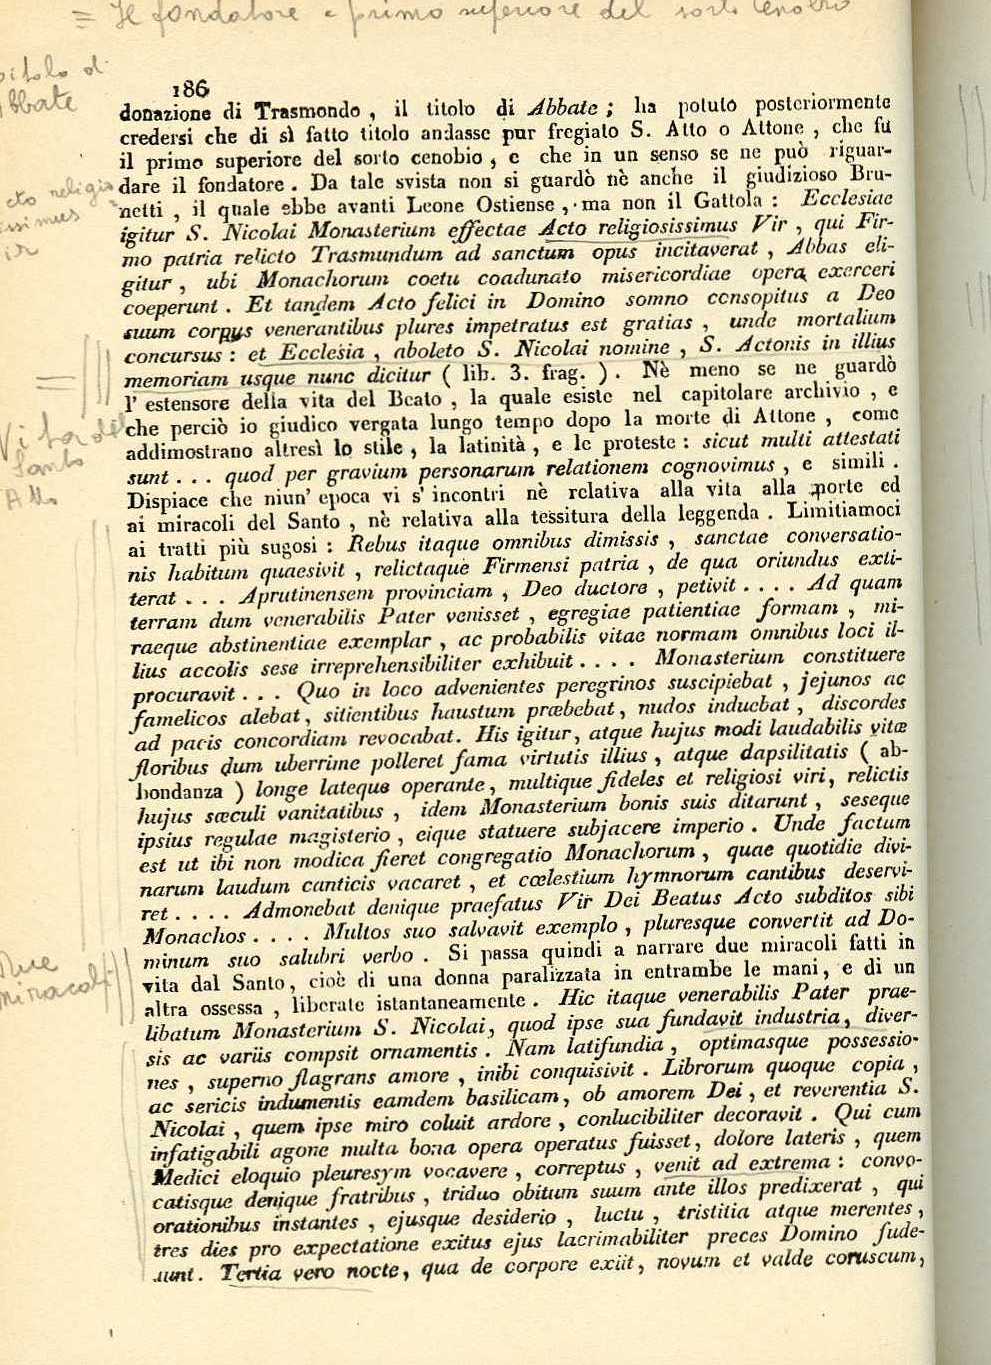 = Il fondatore e primo superiore del sorto Cenobio
186
donazione di Trasmondo , il titolo di Abbate ; ha potuto posteriormente
credersi che di sì fatto titolo andasse pur fregiato S. Atto o Attone , che fu
il primo superiore del sorto cenobio , e che in un senso se ne può riguar-
dare il fondatore . Da tale svista non si guardò nè anche il giudizioso Bru-
netti , il quale ebbe avanti Leone Ostiense , ma non il Gattola : Ecclesiae
igitur S. Nicolai Monasterium effectae Acto religiosissimus Vir , qui Fir-
mo patria relicto Trasmundum ad sanctum opus incitaverat , Abbas eli-
gitur , ubi Monachorum coetu coadunato misericordiae opera exerceri
coeperunt . Et tandem Acto felici in Domino somno consopitus a Deo
suum corpus venerantibus plures impetratus est gratias , unde mortalium
concursus : et Ecclesia , aboleto S. Nicolai nomine , S. Actonis in illius
memoriam usque nunc dicitur ( lib. 3. frag. ) . Nè meno se ne guardò
l' estensore della vita del Beato , la quale esiste nel capitolare archivio , e
che perciò io giudico vergata lungo tempo dopo la morte di Attone , come
addimostrano altresì lo stile , la latinità , e le proteste : sicut multi attestati
sunt . . . quod per gravium personarum relationem cognovimus , e simili .
Dispiace che niun' epoca vi s' incontri nè relativa alla vita alla morte ed
ai miracoli del Santo , nè relativa alla tessitura della leggenda . Limitiamoci
ai tratti più sugosi : Rebus itaque omnibus dimissis , sanctae conversatio-
nis habitum quaesivit , relictaque Firmensi patria , de qua oriundus exti-
terat . . . Aprutinensem provinciam , Deo ductore , petivit . . . . Ad quam
terram dum venerabilis Pater venisset , egregiae patientiae formam , mi-
raeque abstinentiae exemplar , ac probabilis vitae normam omnibus loci il-
lius accolis sese irreprehensibiliter exhibuit . . . . Monasterium constituere
procuravit . . . Quo in loco advenientes peregrinos suscipiebat , jejunos ac
famelicos alebat , sitientibus haustum præbebat , nudos induebat , discordes
ad pacis concordiam revocabat. His igitur, atque hujus modi laudabilis vitæ
floribus dum uberrime polleret fama virtutis illius , atque dapsilitatis ( ab-
bondanza ) longe lateque operante, multique fideles et religiosi viri, relictis
hujus sæculi vanitatibus , idem Monasterium bonis suis ditarunt , seseque
ipsius regulae magisterio , eique statuere subjacere imperio . Unde factum
est ut ibi non modica fieret congregatio Monachorum , quae quotidie divi-
narum laudum canticis vacaret , et cœlestium hymnorum cantibus deservi-
ret . . . . Admonebat denique praefatus Vir Dei Beatus Acto subditos sibi
Monachos . . . . Multos suo salvavit exemplo , pluresque convertit ad Do-
minum suo salubri verbo . Si passa quindi a narrare due miracoli fatti in
vita dal Santo, cioè di una donna paralizzata in entrambe le mani, e di un
altra ossessa , liberate istantaneamente . Hic itaque venerabilis Pater prae-
libatum Monasterium S. Nicolai, quod ipse sua fundavit industria, diver-
sis ac variis compsit ornamentis . Nam latifundia , optimasque possessio-
nes , superno flagrans amore , inibi conquisivit . Librorum quoque copia ,
ac sericis indumentis eamdem basilicam, ob amorem Dei , et reverentia S.
Nicolai , quem ipse miro coluit ardore , conlucibiliter decoravit . Qui cum
infatigabili agone multa bona opera operatus fuisset, dolore lateris , quem
Medici eloquio pleuresym vocavere , correptus , venit ad extrema : convo-
catisque denique fratribus , triduo obitum suum ante illos predixerat , qui
orationibus instantes , ejusque desiderio , luctu , tristitia atque merentes ,
tres dies pro expectatione exitus ejus lacrimabiliter preces Domino fude-
runt. Tertia vero nocte, qua de corpore exiit, novum et valde coruscum,
Abbate
religio
Vita del
Santo
Atto
Due
miracoli